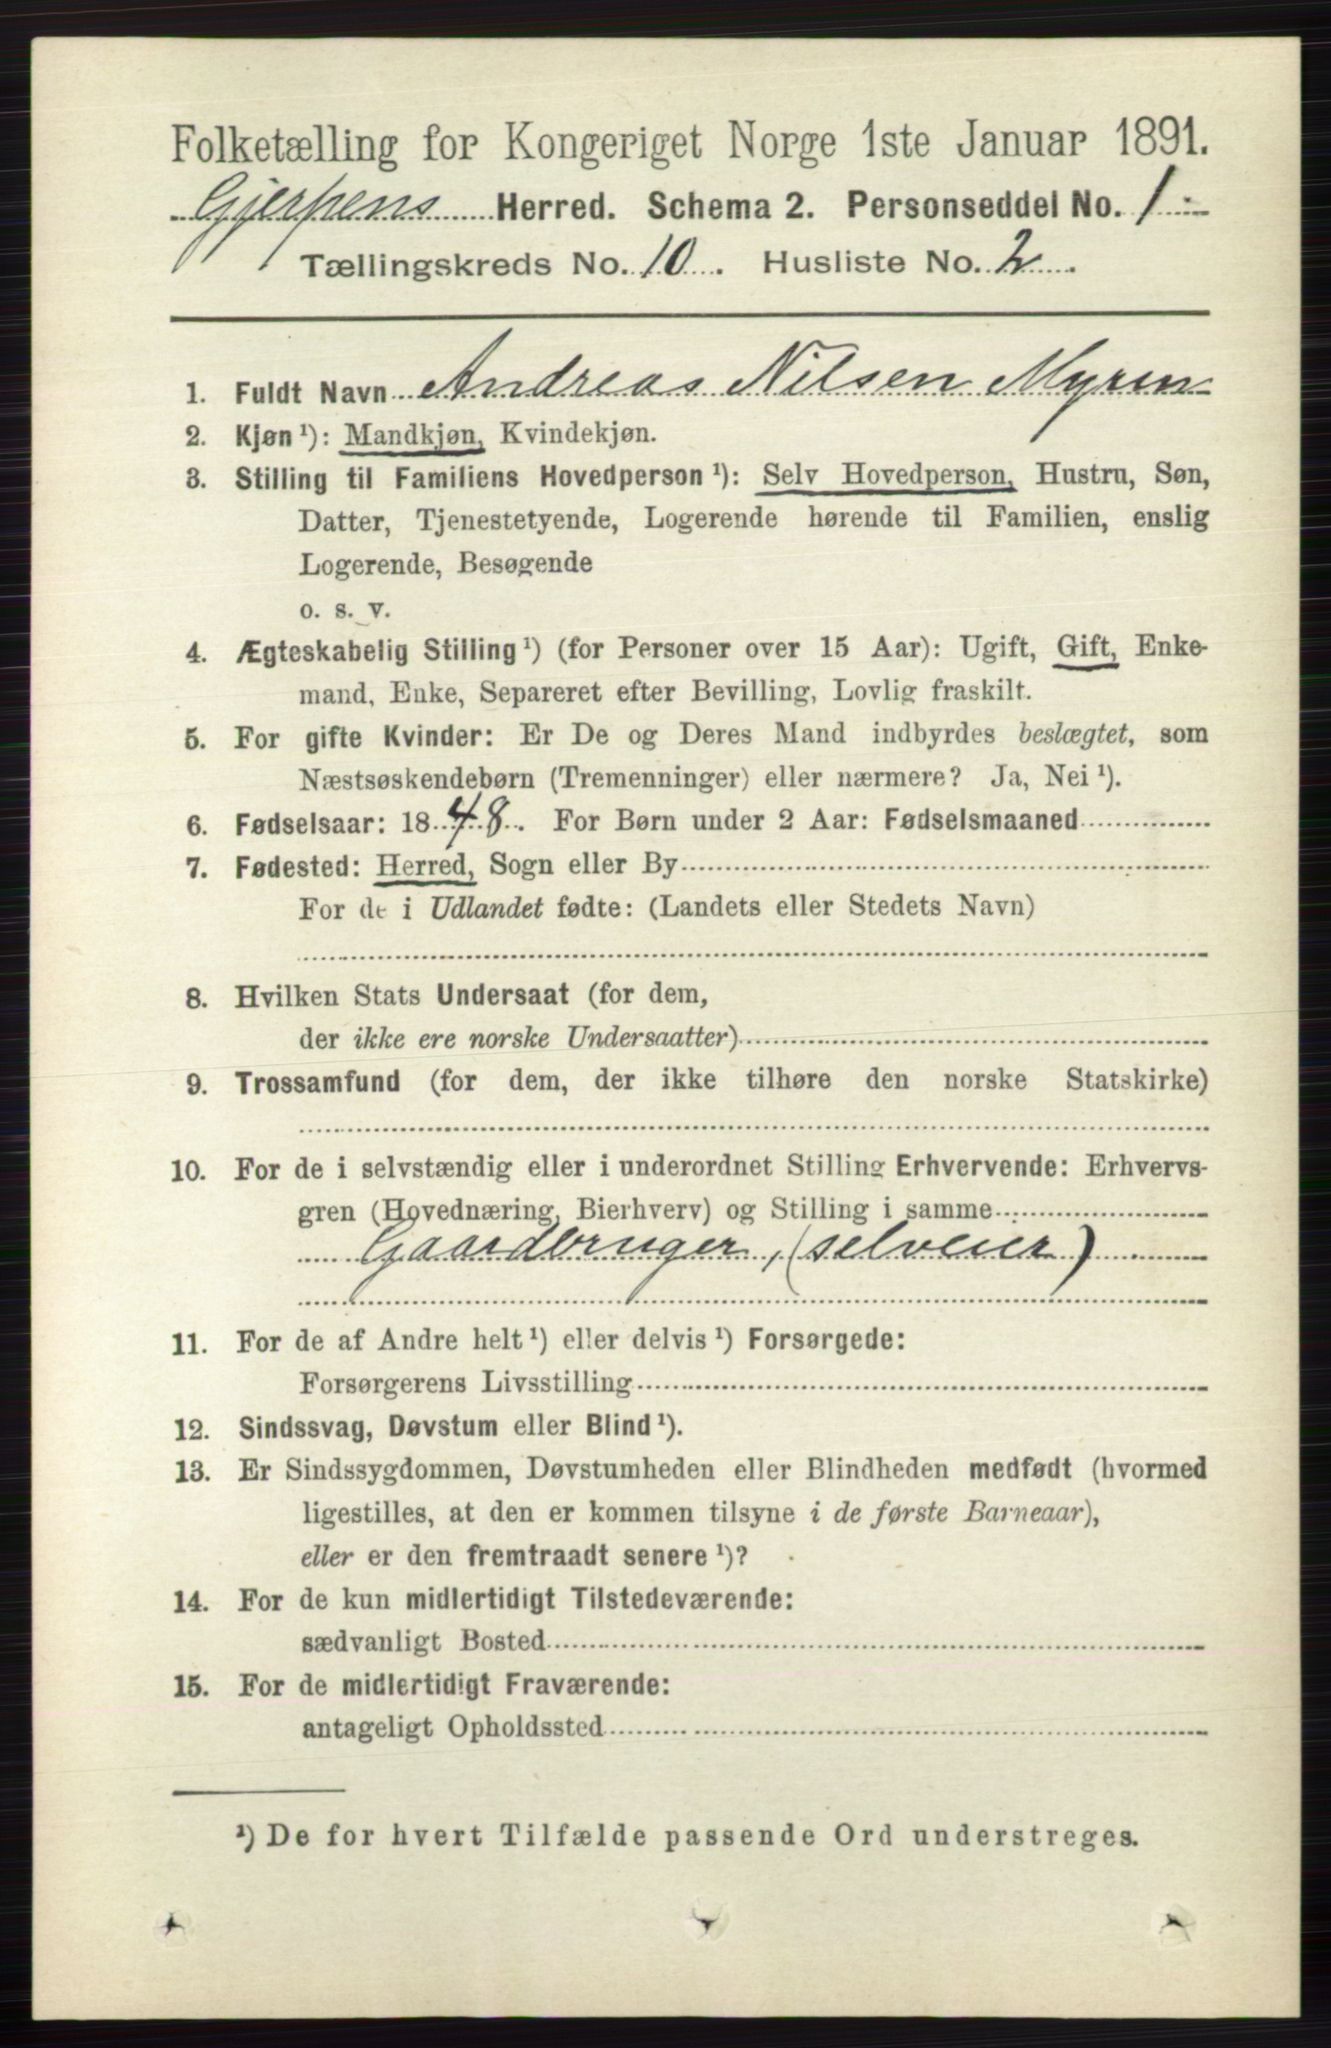 Folketælling for Kongeriget Norge 1ste Januar 1891.
Gjerpens Herred. Schema 2. Personseddel No. 1
Tællingskreds No. 10. Husliste No. 2.
1. Fuldt Navn Andreas Nilsen Myren
2. Kjøn¹): Mandkjøn, Kvindekjøn.
3. Stilling til Familiens Hovedperson¹): Selv Hovedperson, Hustru, Søn,
Datter, Tjenestetyende, Logerende hørende til Familien, enslig
Logerende, Besøgende
o. s. v.
4. Ægteskabelig Stilling¹) (for Personer over 15 Aar): Ugift, Gift, Enke-
mand, Enke, Separeret efter Bevilling, Lovlig fraskilt.
5. For gifte Kvinder: Er De og Deres Mand indbyrdes beslægtet, som
Næstsøskendebørn (Tremenninger) eller nærmere? Ja, Nei¹).
6. Fødselsaar: 1848. For Børn under 2 Aar: Fødselsmaaned
7. Fødested: Herred, Sogn eller By
For de i Udlandet fødte: (Landets eller Stedets Navn)
8. Hvilken Stats Undersaat (for dem,
der ikke ere norske Undersaatter)
9. Trossamfund (for dem, der ikke tilhøre den norske Statskirke)
10. For de i selvstændig eller i underordnet Stilling Erhvervende: Erhvervs-
gren (Hovednæring, Bierhverv) og Stilling i samme
Gaardbruger, (selveier)
11. For de af Andre helt¹) eller delvis¹) Forsørgede:
Forsørgerens Livsstilling
12. Sindssvag, Døvstum eller Blind¹).
13. Er Sindssygdommen, Døvstumheden eller Blindheden medfødt (hvormed
ligestilles, at den er kommen tilsyne i de første Barneaar),
eller er den fremtraadt senere¹)?
14. For de kun midlertidigt Tilstedeværende:
sædvanligt Bosted
15. For de midlertidigt Fraværende:
antageligt Opholdssted
¹) De for hvert Tilfælde passende Ord understreges.